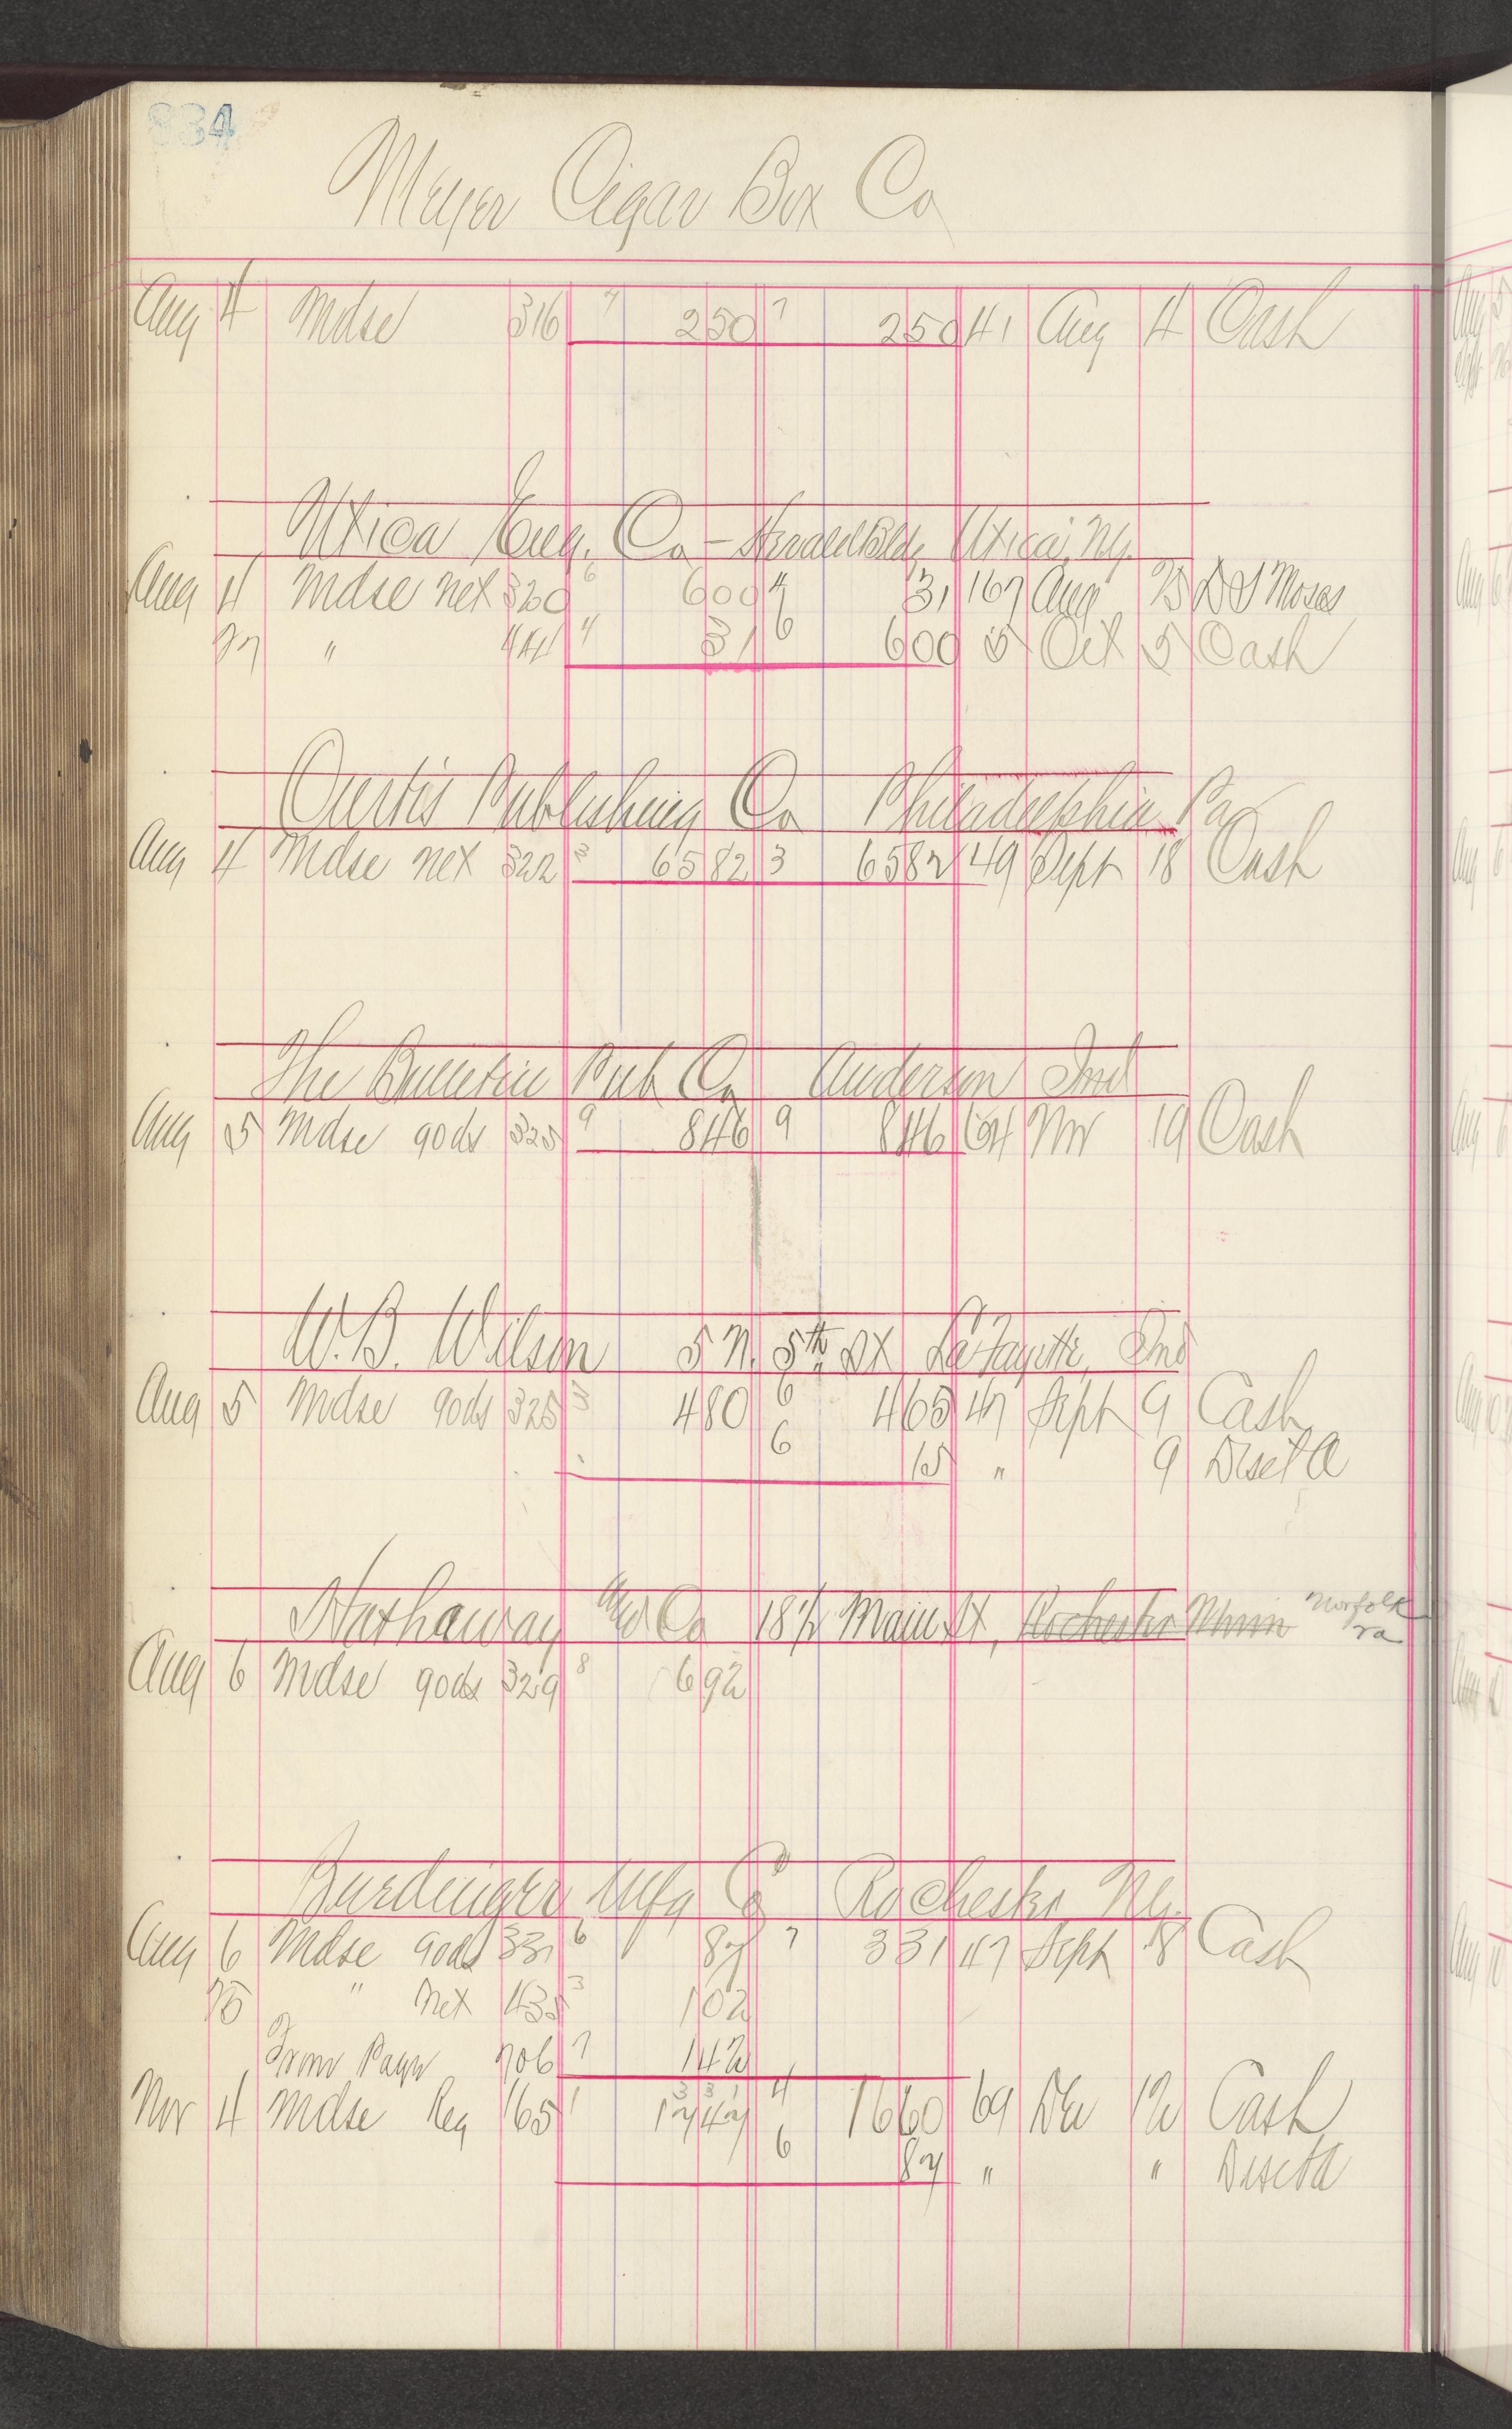 834
Meyer Cigar Box Co
Aug 4 Mdse 316 7 250 7 250 41 Aug 4 Cash
Utica Eng. Co - Herald Bldg, Utica, Ny.
Aug 4 Mdse net 320 6 600 4 31 167 Aug D S Moses
27 " 441 4 31 6 600 5 Oct 5 Cash
Curtis Publishing Co Philadelphia Pa
Aug 4 Mdse net 322 3 6582 3 6582 49 Sept 18 Cash
The Bulletin Pub Co Anderson Ind
Aug 5 Mdse 90ds 325 9 846 9 846 64 Nov 19 Cash
W. B. Wilson 5 N. 5th St LaFayette, Ind
Aug 5 Mdse 90ds 325 3 480 6 465 47 Sept 9 Cash
6 15 " 9 Disct A
Hathaway Co 18 1/2 Main St, Rochester Minn Norfolk
Va
Aug 6 Mdse 90ds 329 8 692
Burdinger Mfg Co Rochester Ny.
Aug 6 Mdse 90ds 331 6 87 7 331 47 Sept 8 Cash
25 " Net 435 3 102
From Page 706 7 142
331
Nov 4 Mdse Reg 165 1 1747 4 1660 69 Dec 12 Cash
6 87 " " Disct A